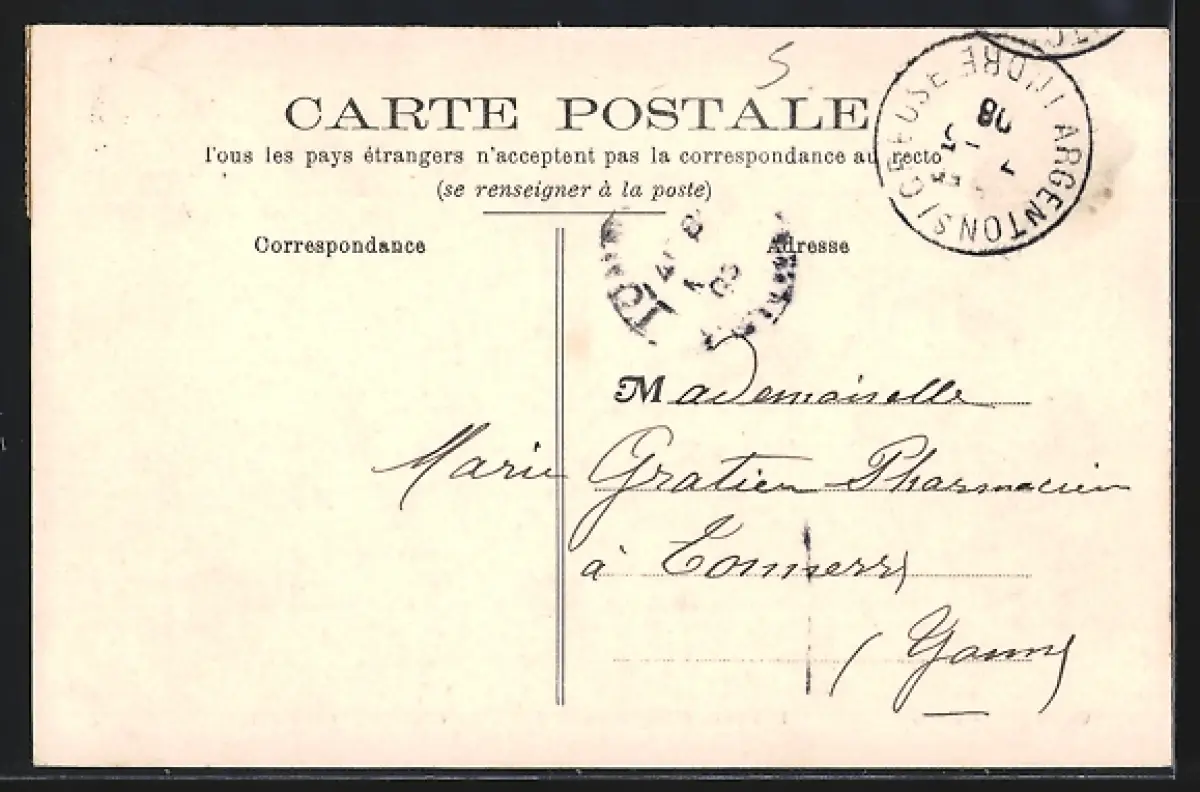 5
CARTE POSTALE
Tous les pays étrangers n'acceptent pas la correspondance au recto
(se renseigner à la poste)
Correspondance
Adresse
ARGENTON S/ CREUSE INDRE
08
Mademoiselle
Marie Gratien Pharmacien
à Tonnerre
(Yonne)